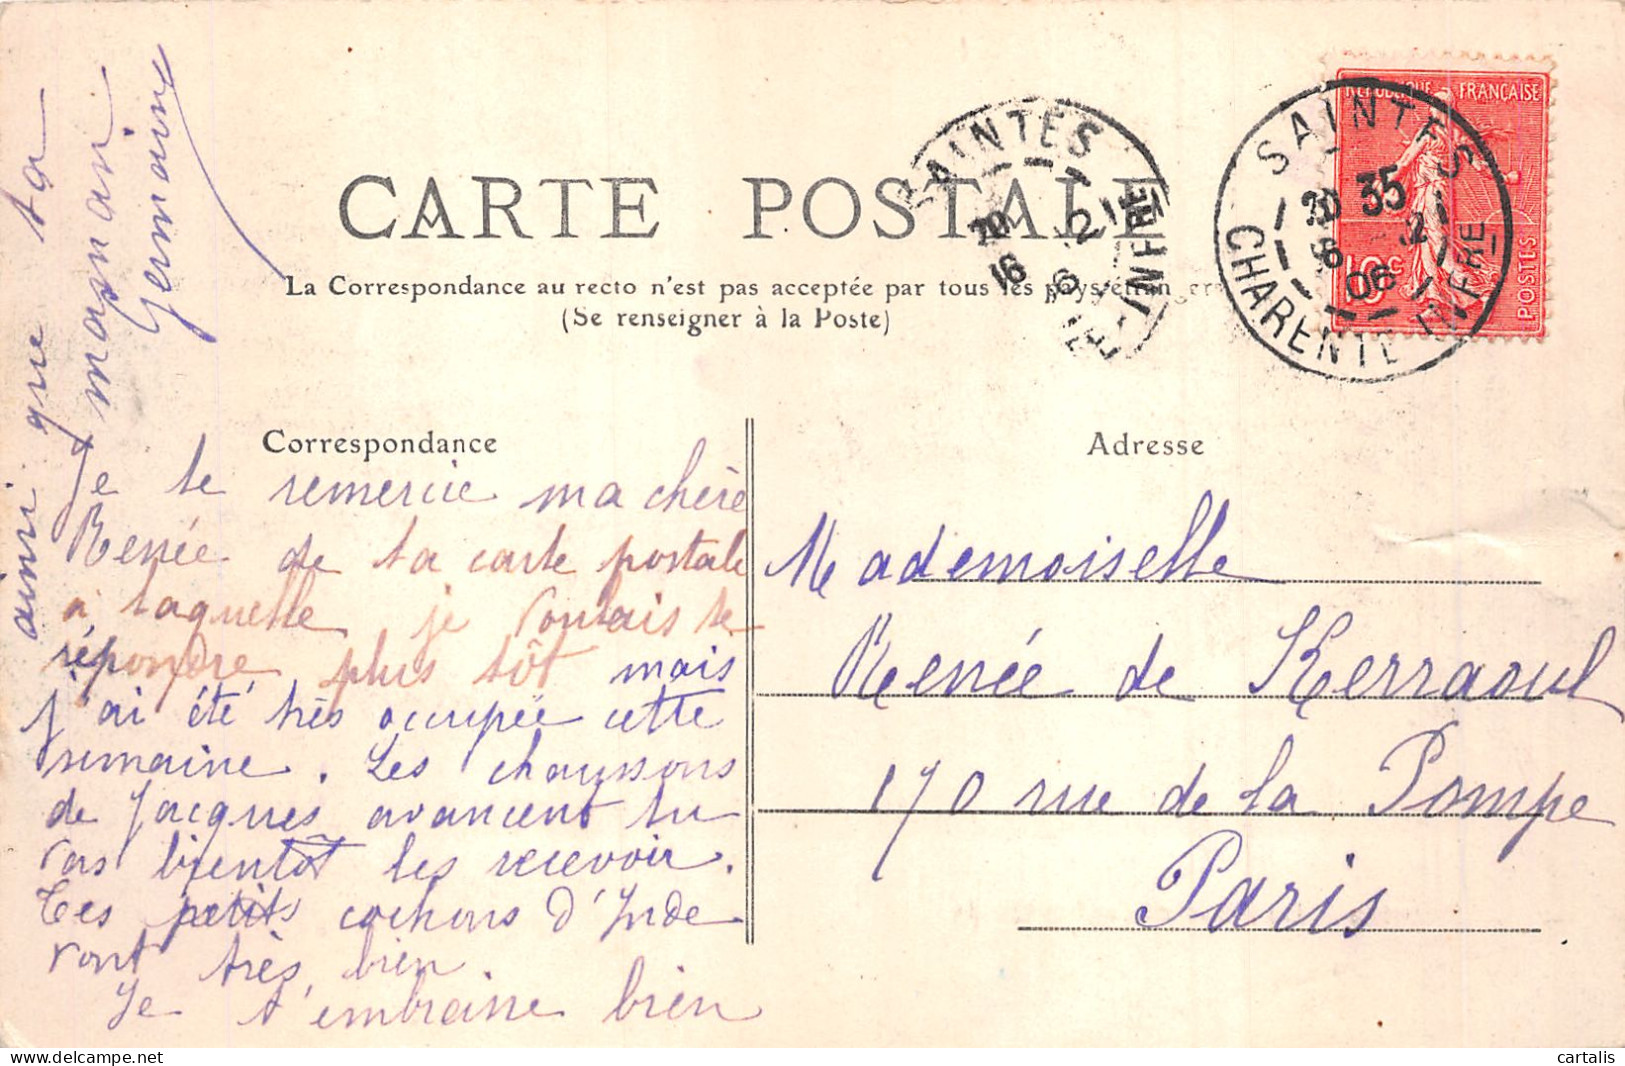 CARTE POSTALE
La Correspondance au recto n'est pas acceptée par tous les pays étrangers
(Se renseigner à la Poste)
REPUBLIQUE FRANÇAISE
10c
POSTES
SAINTES
CHARENTE-INFRE
20 35
6 2
06
SAINTES
TE-INFRE
20
16 2
6
Correspondance
Adresse
Je te remercie ma chère
Renée de ta carte postale
à laquelle je voulais te
répondre plus tôt mais
j'ai été très occupée cette
semaine. Les chaussons
de Jacques avancent tu
vas bientôt les recevoir.
Tes petits cochons d'Inde
vont très bien
Je t'embrasse bien
ainsi que ta
maman
Germaine
Mademoiselle
Renée de Kerraoul
170 rue de la Pompe
Paris
cartalis